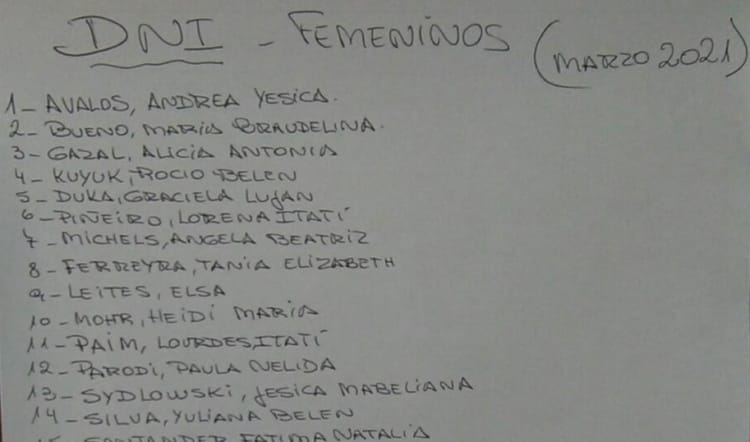 DNI - FEMENINOS (MARZO 2021)
1- AVALOS, ANDREA YESICA.
2- BUENO, MARIA BRAUDELINA.
3- GAZAL, ALICIA ANTONIA
4- KUYUK, ROCIO BELEN
5- DUKA, GRACIELA LUJAN
6- PIÑEIRO, LORENA ITATÍ
7- MICHELS, ANGELA BEATRIZ
8- FERREYRA, TANIA ELIZABETH
9- LEITES, ELSA
10- MOHR, HEIDI MARIA
11- PAIM, LOURDES, ITATÍ
12- PARODI, PAULA NELIDA
13- SYDLOWSKI, JESICA MABELIANA
14- SILVA, YULIANA BELEN
15- SANTANDER FATIMA NATALIA